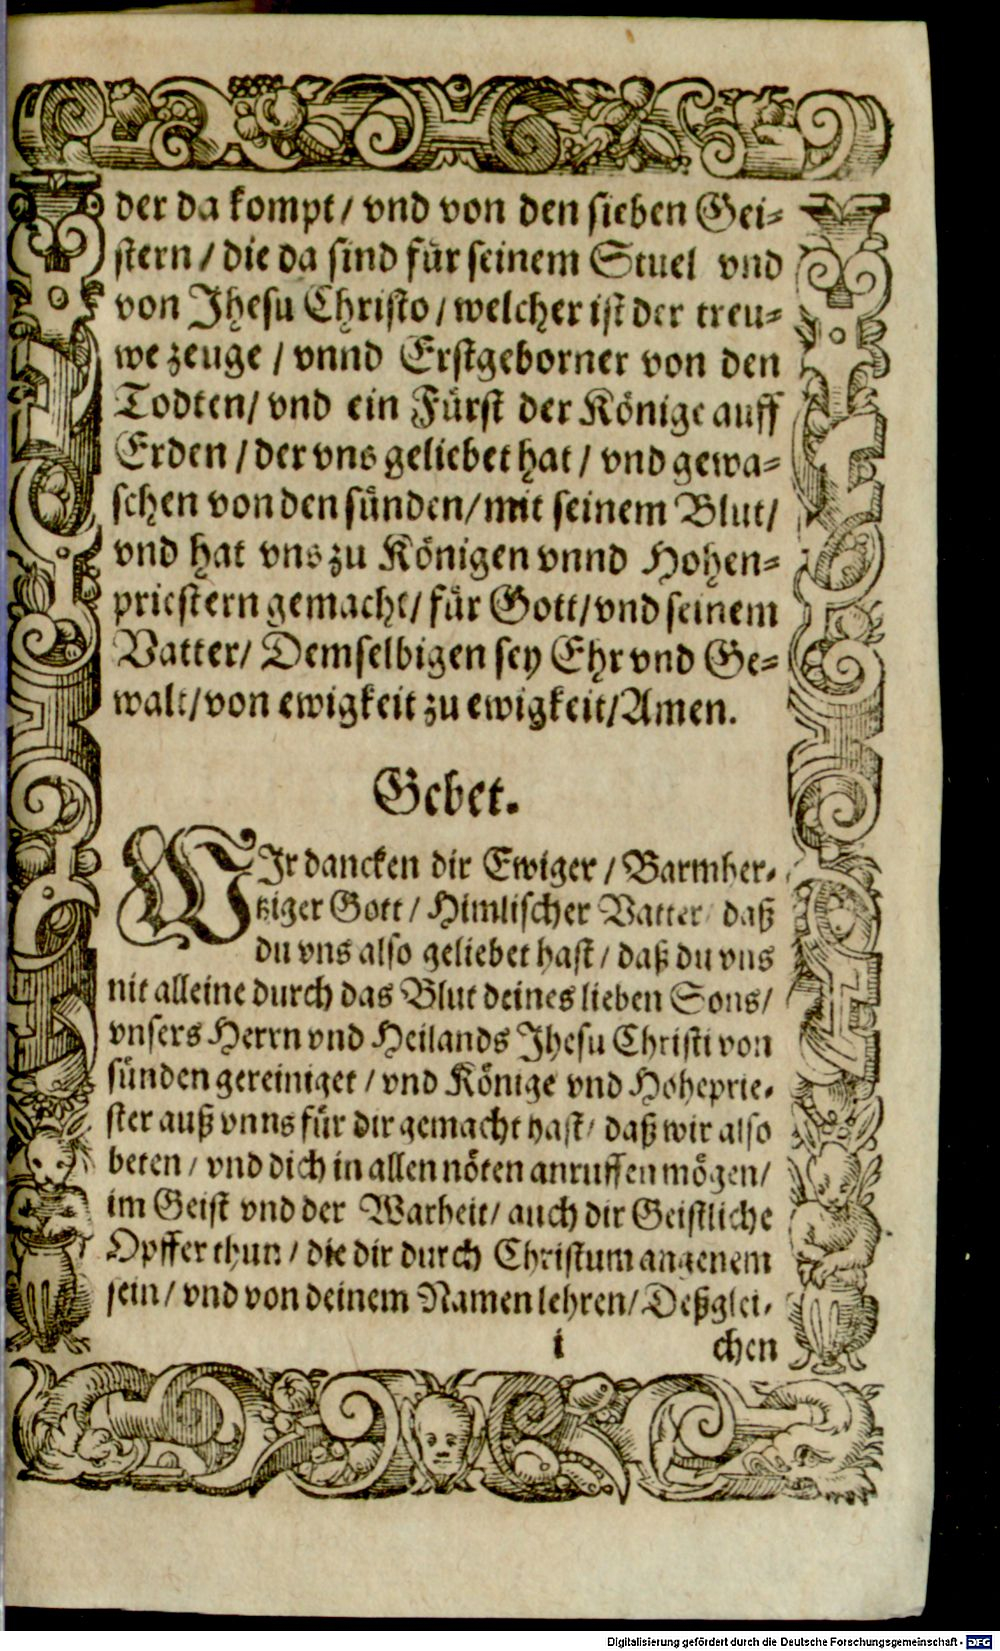 der da kompt / vnd von den sieben Gei⸗
stern / die da sind für seinem Stuel vnd
von Jhesu Christo / welcher ist der treu⸗
we zeuge / vnnd Erstgeborner von den
Todten / vnd ein Fürst der Könige auff
Erden / der vns geliebet hat / vnd gewa⸗
schen von den sünden / mit seinem Blut /
vnd hat vns zu Königen vnnd Hohen⸗
priestern gemacht / für Gott / vnd seinem
Vatter / Demselbigen sey Ehr vnd Ge⸗
walt / von ewigkeit zu ewigkeit / Amen.
Gebet.
WJr dancken dir Ewiger / Barmher⸗
tziger Gott / Himlischer Vatter / daß
du vns also geliebet hast / daß du vns
nit alleine durch das Blut deines lieben Sons /
vnsers Herrn vnd Heilands Jhesu Christi von
sünden gereiniget / vnd Könige vnd Hoheprie⸗
ster auß vnns für dir gemacht hast / daß wir also
beten / vnd dich in allen nöten anruffen mögen /
im Geist vnd der Warheit / auch dir Geistliche
Opffer thun / die dir durch Christum angenem
sein / vnd von deinem Namen lehren / Deßglei⸗
i chen
Digitalisierung gefördert durch die Deutsche Forschungsgemeinschaft - DFG